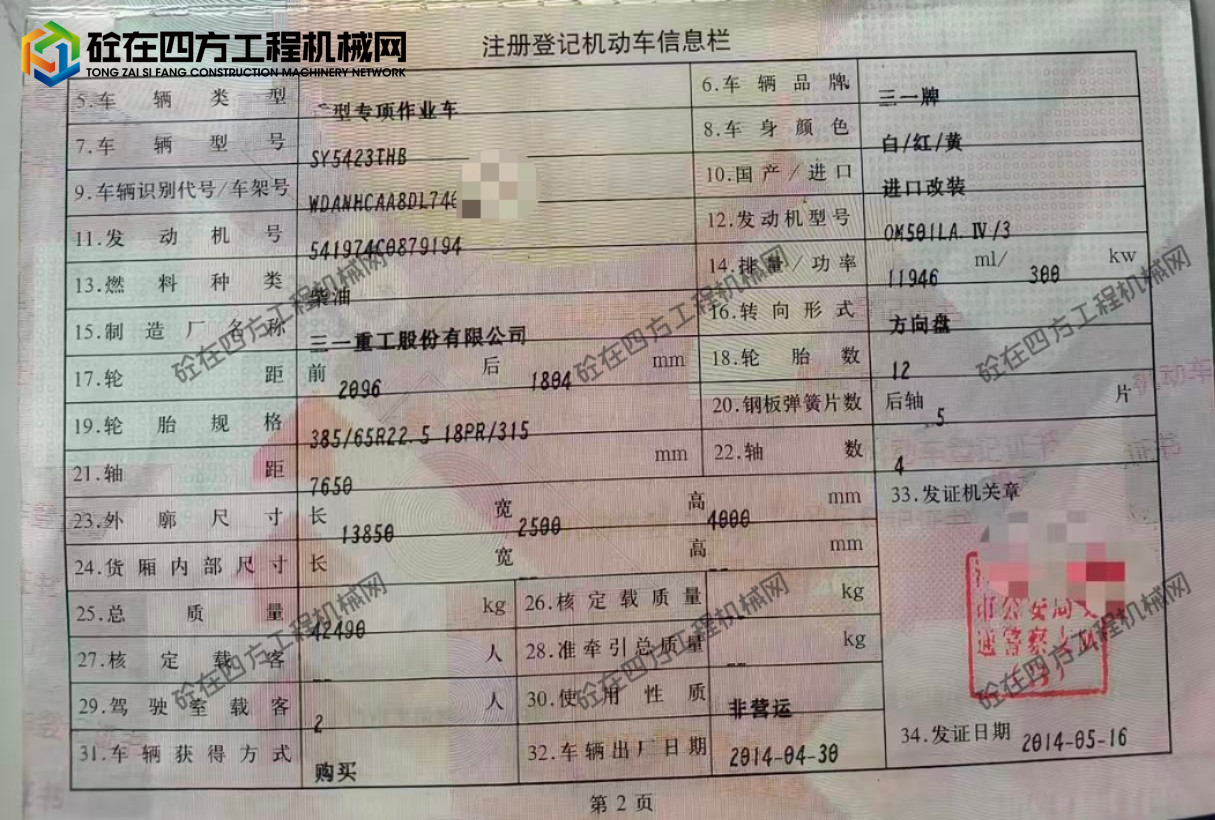 砼在四方工程机械网
TONG ZAI SI FANG CONSTRUCTION MACHINERY NETWORK
注册登记机动车信息栏
5.车辆类型 型专项作业车 6.车辆品牌 三一牌
7.车辆型号 SY5423THB 8.车身颜色 白/红/黄
9.车辆识别代号/车架号 WDANHCAA8DL746 10.国产/进口 进口改装
11.发动机号 541974C0879194 12.发动机型号 OM501LA.Ⅳ/3
13.燃料种类 柴油 14.排量/功率 11946 ml/ 300 kw
15.制造厂名称 三一重工股份有限公司 16.转向形式 方向盘
17.轮距 前 2096 后 1804 mm 18.轮胎数 12
19.轮胎规格 385/65R22.5 18PR/315 20.钢板弹簧片数 后轴 5 片
21.轴距 7650 mm 22.轴数 4
23.外廓尺寸 长 13850 宽 2500 高 4000 mm 33.发证机关章
24.货厢内部尺寸 长 宽 -- 高 -- mm
25.总质量 42490 kg 26.核定载质量 -- kg
27.核定载客 -- 人 28.准牵引总质量 -- kg
29.驾驶室载客 2 人 30.使用性质 非营运
31.车辆获得方式 购买 32.车辆出厂日期 2014-04-30 34.发证日期 2014-05-16
市公安局交
通警察支队
第2页
砼在四方工程机械网
砼在四方工程机械网
砼在四方工程机械网
砼在四方工程机械网
砼在四方工程机械网
砼在四方工程机械网